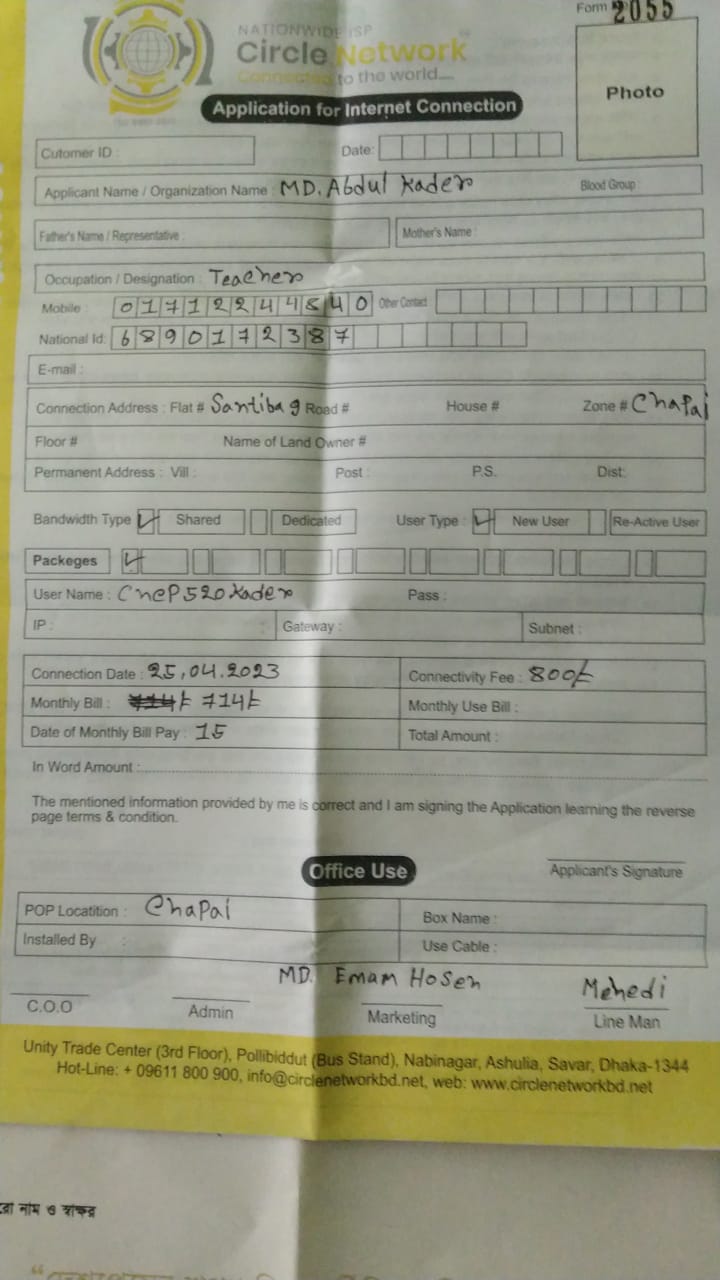 Form 2055
NATIONWIDE ISP
Circle Network
Connected to the world....
Photo
Application for Internet Connection
Cutomer ID : Date:
Applicant Name / Organization Name : MD. Abdul Kader Blood Group :
Father's Name / Representative : Mother's Name :
Occupation / Designation : Teacher
Mobile : 01712244540 Other Contact
National Id: 6890172387
E-mail :
Connection Address : Flat # Santibag Road # House # Zone # Chapai
Floor # Name of Land Owner #
Permanent Address : Vill : Post : P.S. Dist:
Bandwidth Type Shared Dedicated User Type : New User Re-Active User
Packeges
User Name : CneP520Kader Pass :
IP : Gateway : Subnet :
Connection Date : 25.04.2023 Connectivity Fee : 800/-
Monthly Bill : 714/- Monthly Use Bill :
Date of Monthly Bill Pay : 15 Total Amount :
In Word Amount :
The mentioned information provided by me is correct and I am signing the Application learning the reverse
page terms & condition.
Office Use
Applicant's Signature
POP Locatition : Chapai Box Name :
Installed By : Use Cable :
MD. Emam Hosen Mehedi
C.O.O Admin Marketing Line Man
Unity Trade Center (3rd Floor), Pollibiddut (Bus Stand), Nabinagar, Ashulia, Savar, Dhaka-1344
Hot-Line: + 09611 800 900, info@circlenetworkbd.net, web: www.circlenetworkbd.net
নাম ও স্বাক্ষর